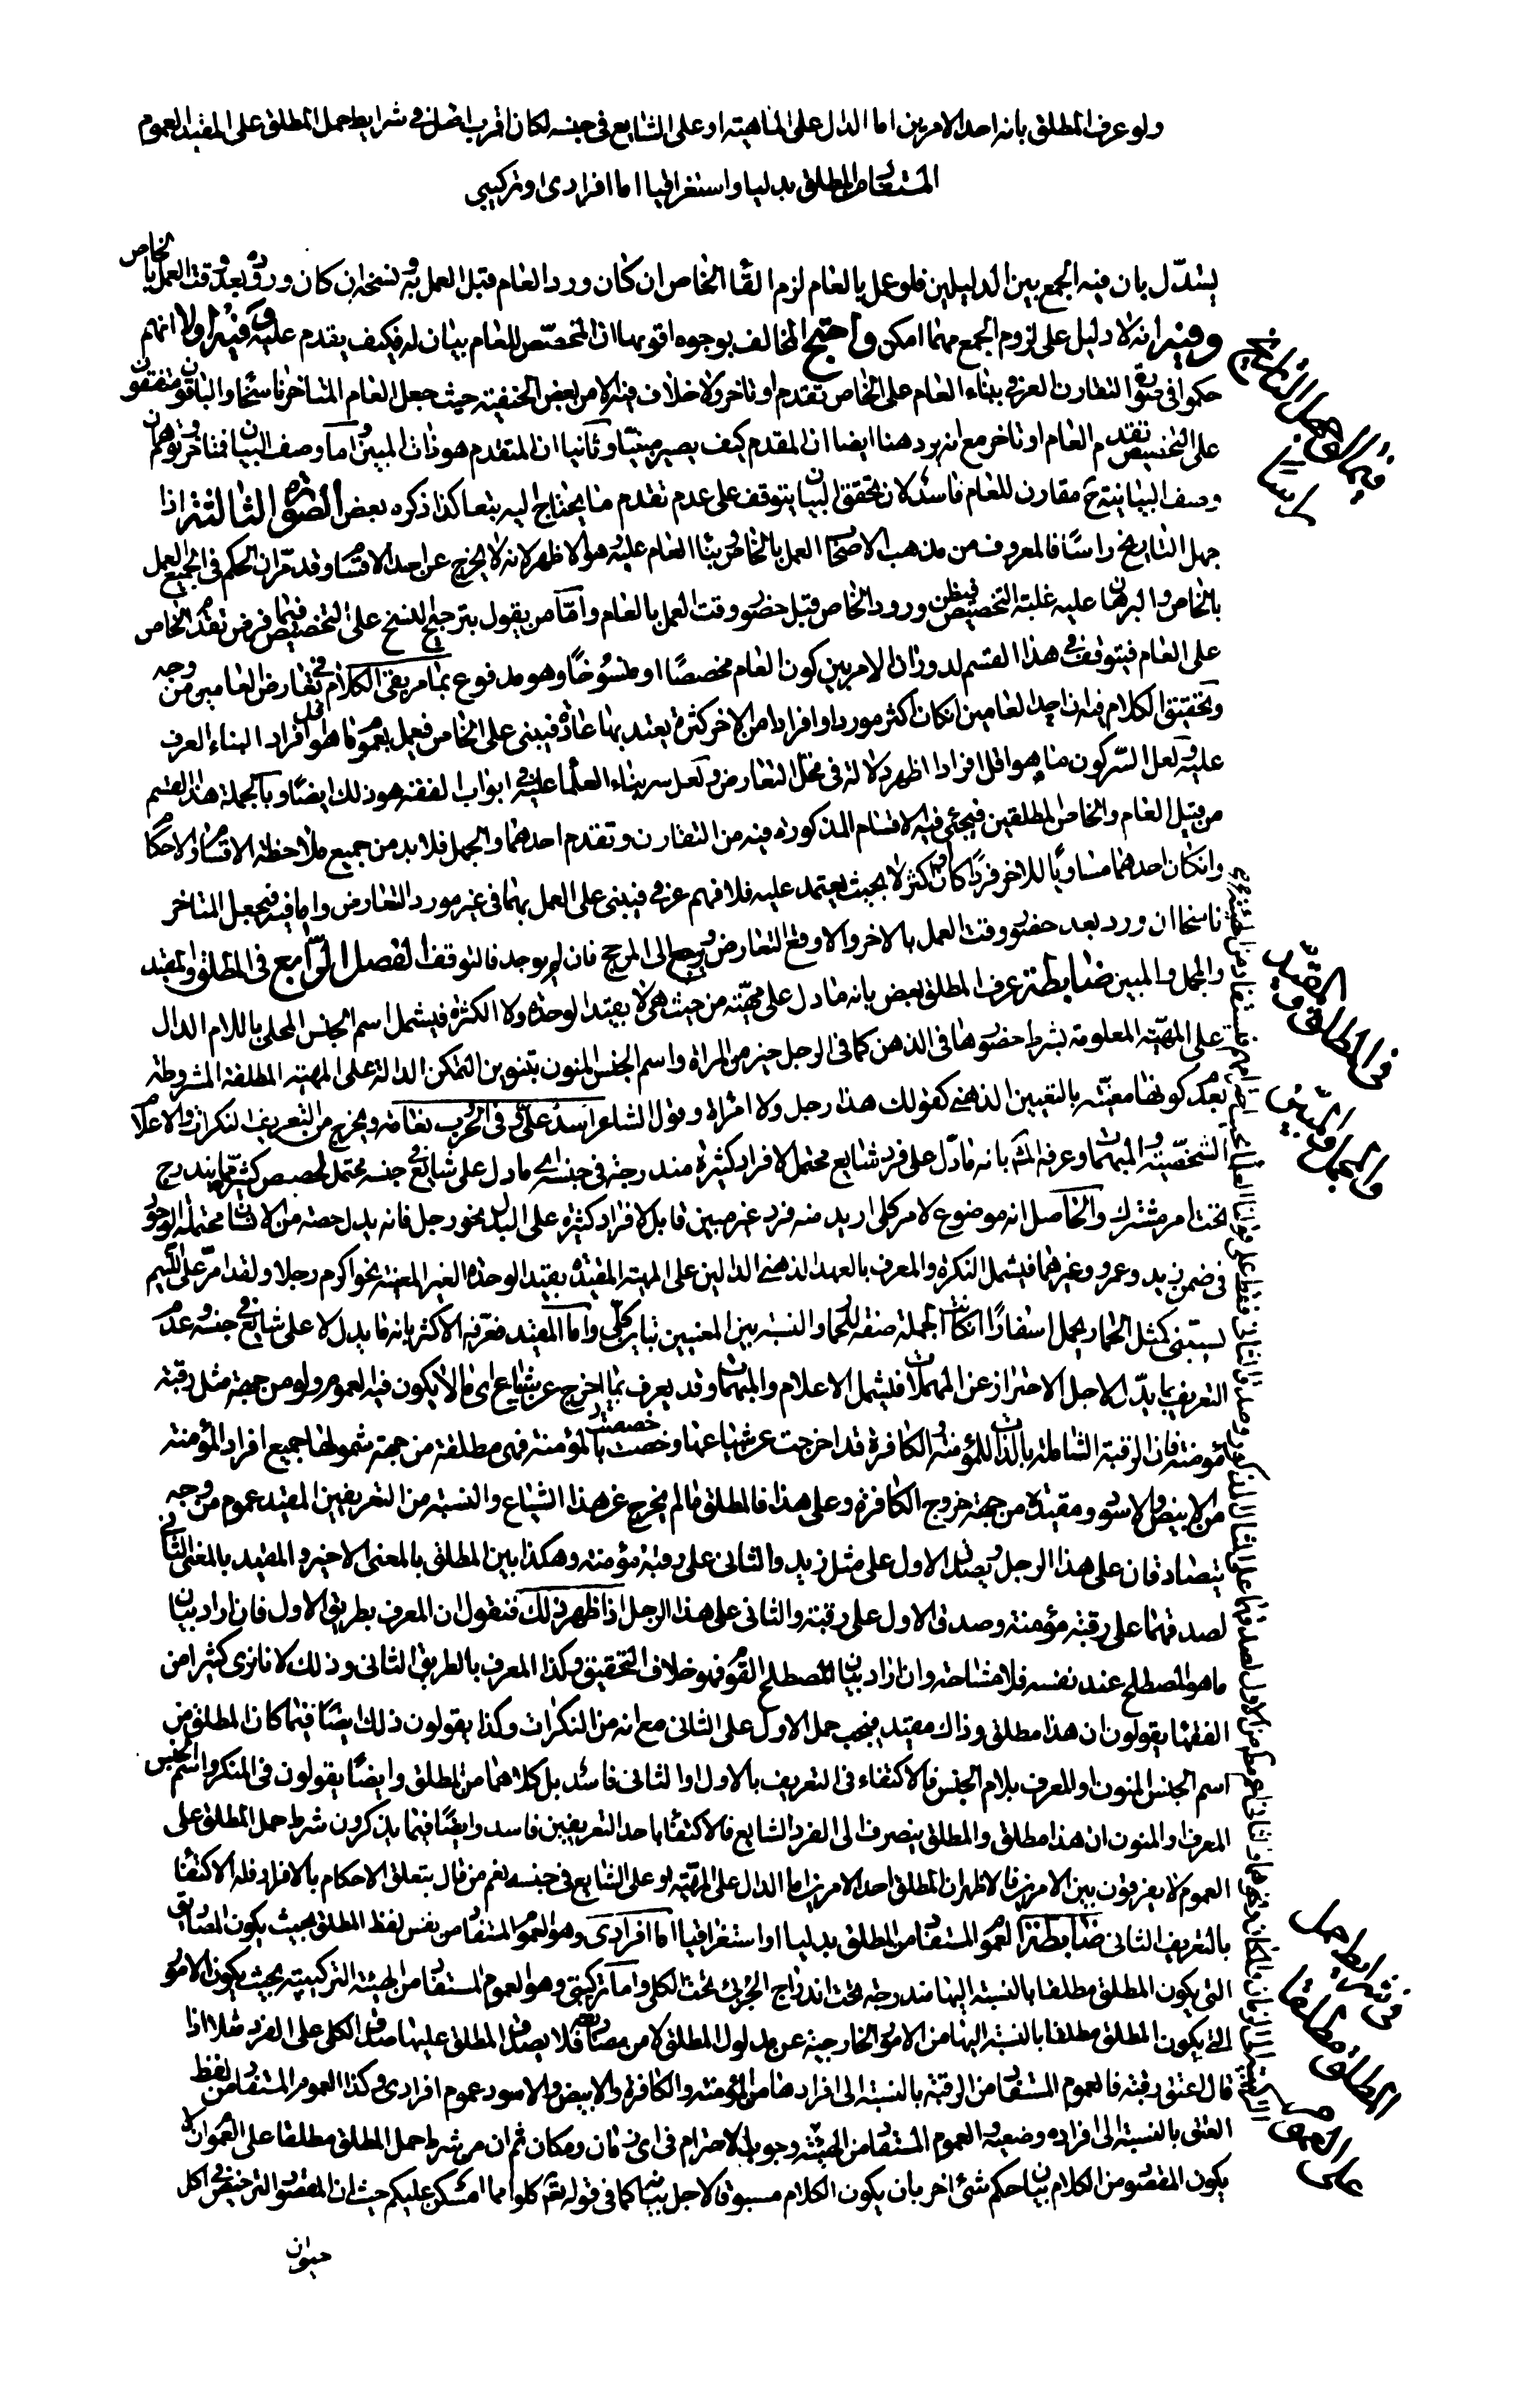 ولو عرف المطلق بانه احد الامرين اما الدال على الماهية او على الشايع فى جنسه لكان اقرب اصل فى شرايط حمل المطلق على المقيد العموم
المستفاد من المطلق بدليا واستغراقيا اما افرادى او تركيبى
يستدل بان فيه الجمع بين الدليلين فلو عمل بالعام لزم الغاء الخاص ان كان ورود العام قبل العمل به ونسخه ان كان وروده بعد وقت العمل بالخاص
وفيه انه لا دليل على لزوم الجمع مهما امكن واحتج المخالف بوجوه اقويها ان المخصص للعام بيان له فكيف يقدم عليه وفيه اولا انهم
حكموا فى صورة التقارن العرفى ببناء العام على الخاص تقدم او تاخر ولا خلاف فيه الا من بعض الحنفية حيث جعل العام المتاخر ناسخا والباقون متفقون
على التخصيص تقدم العام او تاخر مع انه يرد هنا ايضا ان المقدم كيف يصير مبينا وثانيا ان المتقدم هو ذات المبين واما وصف البيان فمتاخر وتوهم ان
وصف البيانية ح مقارن للعام فاسد لان تحقق البيان يتوقف على عدم تقدم ما يحتاج اليه تبعا كذا ذكره بعض الصورة الثالثة اذا
جهل التاريخ راسا فالمعروف من مذهب الاصحاب العمل بالخاص وبناء العام عليه وهو الاظهر لانه لا يخرج عن احد الاقسام وقد مر ان الحكم فى الجميع العمل
بالخاص والبرهان عليه غلبة التخصيص فيظن ورود الخاص قبل حضور وقت العمل بالعام واما من يقول بترجيح النسخ على التخصيص فيما فرض تقدم الخاص
على العام فيتوقف فى هذا القسم لدوران الامر بين كون العام مخصصا او منسوخا وهو مدفوع بما مر بقى الكلام فى تعارض العامين من وجه
وتحقيق الكلام فيه ان احد العامين ان كان اكثر موردا وافرادا من الاخر كثرة يعتد بها عادة فيبنى على الخاص فيعمل بعموم ما هو اقل افرادا لبناء العرف
عليه ولعل السر كون ما هو اقل افرادا اظهر دلالة فى محل التعارض ولعل سر بناء العلماء عليه فى ابواب الفقه هو ذلك ايضا وبالجملة هذا القسم
من قبيل العام والخاص المطلقين فيجئ فيه الاقسام المذكورة فيه من التقارن وتقدم احدهما والجهل فلا بد من جميع ملاحظة الاقسام والاحكام
وان كان احدهما مساويا للاخر فردا او كان اكثر لا بحيث يعتمد عليه فلا فهم عرفى فيبنى على العمل بهما فى غير مورد التعارض واما فيه فيجعل المتاخر
ناسخا ان ورد بعد حضور وقت العمل بالاخر والا وقع التعارض ويرجع الى المرجح فان لم يوجد فالتوقف الفصل الرابع فى المطلق والمقيد
والمجمل والمبين ضابطة عرف المطلق بعض بانه ما دل على مهية من حيث هى لا بقيد الوحدة ولا الكثرة فيشمل اسم الجنس المحلى باللام الدال
على المهية المعلومة بشرط حضورها فى الذهن كما فى الرجل خير من المراة واسم الجنس المنون بتنوين التمكن الدالة على المهية المطلقة المشروطة
بعدم كونها معينة بالتعيين الذهنى كقولك هذا رجل ولا امراة وقول الشاعر اسد على وفى الحروب نعامة ويخرج من التعريف النكرات والاعلام
الشخصية والمبهمات وعرفه المشهور بانه ما دل على فرد شايع محتمل لافراد كثيرة مندرجة فى جنسه اى ما دل على شايع فى جنسه محتمل لحصص كثيرة مما يندرج
تحت امر مشترك والحاصل انه موضوع لامر كلى اريد منه فرد غير مبين قابل لافراد كثيرة على البدل نحو رجل فانه يدل حصة من الانسان محتملة الوجود
فى ضمن زيد وعمرو وغيرهما فيشمل النكرة والمعرف بالعهد الذهنى الدالين على المهية المقيدة بقيد الوحدة الغير المعينة نحو اكرم رجلا ولقد امر على اللئيم
يسبنى كمثل الحمار يحمل اسفارا ان كانت الجملة صفة للحمار والنسبة بين المعنيين تباين كلى واما المقيد فعرفه الاكثر بانه ما يدل لا على شايع فى جنسه وعدم
التعريف بما يدل لاجل الاحتراز عن المهملات فيشمل الاعلام والمبهمات وقد يعرف بما اخرج عن شياع اى ما لا يكون فيه العموم ولو من جهة مثل رقبة
مؤمنة فان الرقبة الشاملة بالذات للمؤمنة والكافرة قد اخرجت عن شياعها وخصصت بالمؤمنة فهى مطلقة من جهة شمولها جميع افراد المؤمنة
من الابيض والاسود ومقيدة من جهة خروج الكافرة وعلى هذا فالمطلق ما لم يخرج عن هذا الشياع والنسبة من التعريفين المقيد عموم من وجه
يتصادقان على هذا الرجل ويصدق الاول على مثل زيد والثانى على رقبة مؤمنة وهكذا بين المطلق بالمعنى الاخير والمقيد بالمعنى الثانى
لصدقهما على رقبة مؤمنة وصدق الاول على رقبة والثانى على هذا الرجل اذا ظهر ذلك فنقول ان المعرف بطريق الاول فان اراد بيان
ما هو المصطلح عند نفسه فلا مشاحة وان اراد بيان المصطلح القوم فهو خلاف التحقيق وكذا المعرف بالطريق الثانى وذلك لانا نرى كثيرا من
الفقهاء يقولون ان هذا مطلق وذاك مقيد فيجب حمل الاول على الثانى مع انه من النكرات وكذا يقولون ذلك ايضا فيما كان المطلق من
اسم الجنس المنون او المعرف بلام الجنس فالاكتفاء فى التعريف بالاول او الثانى فاسد بل كلاهما من المطلق وايضا يقولون فى المنكر واسم الجنس
المعرف والمنون ان هذا مطلق والمطلق ينصرف الى الفرد الشايع فالاكتفاء باحد التعريفين فاسد وايضا فيما يذكرون شرط حمل المطلق على
العموم لا يفرقون بين الامرين فالاظهر ان المطلق احد الامرين اما الدال على المهية او على الشايع فى جنسه نعم من قال بتعلق الاحكام بالافراد فله الاكتفاء
بالتعريف الثانى ضابطة العموم المستفاد من المطلق بدليا او استغراقيا اما افرادى وهو العموم المستفاد من نفس لفظ المطلق بحيث يكون المصاديق
التى يكون المطلق مطلقا بالنسبة اليها مندرجة تحت اندراج الجزئى تحت الكلى واما تركيبى وهو العموم المستفاد من الهيئة التركيبية بحيث يكون الامور
التى يكون المطلق مطلقا بالنسبة اليها من الامور الخارجية عن مدلول المطلق لا من مصاديقه فلا يصدق المطلق عليها صدق الكلى على الفرد مثلا اذا
قال اعتق رقبة فالعموم المستفاد من الرقبة بالنسبة الى افرادها من المؤمنة والكافرة والابيض والاسود عموم افرادى وكذا العموم المستفاد من لفظ
العتق بالنسبة الى افراده وضعية والعموم المستفاد من الهيئة وجوب الاحترام فى اى زمان ومكان ثم ان من شرط حمل المطلق مطلقا على العموم ان لا
يكون المقصود من الكلام بيان حكم شئ اخر بان يكون الكلام مسبوقا لاجل بيانه كما فى قوله تعم كلوا مما امسكن عليكم حيث ان المقصود الترخيص فى اكل
حيوان
فيما لو جهل التاريخ
راسا
فى المطلق والمقيد
والمجمل والمبين
فى شرايط حمل
المطلق مطلقا
على العموم